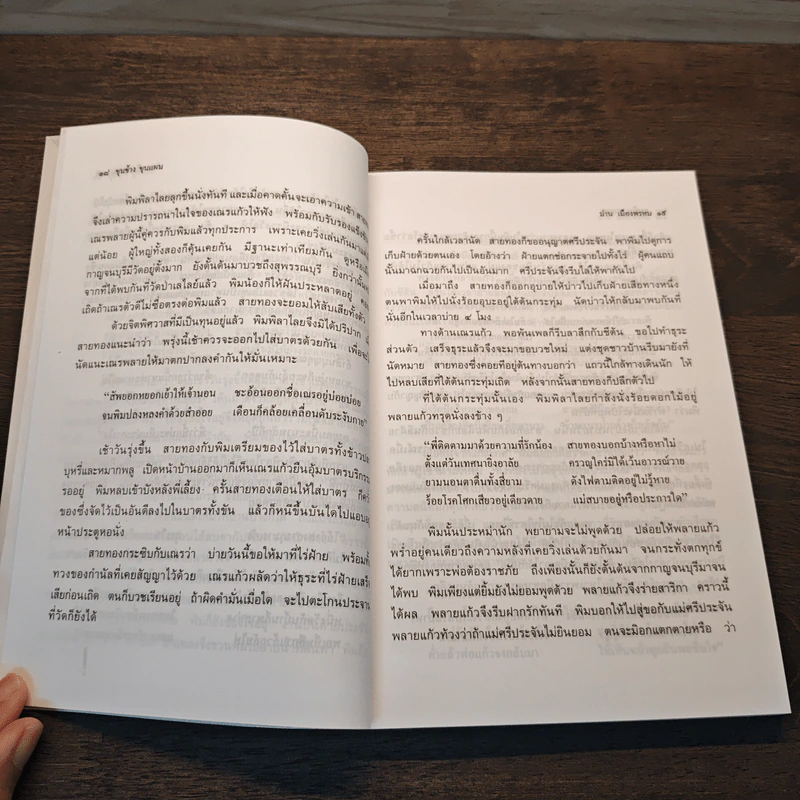 ๑๘ ขุนช้าง ขุนแผน
พิมพิลาไลยลุกขึ้นนั่งทันที และเมื่อคาดคั้นจะเอาความเข้า
จึงเล่าความปรารถนาในใจของเณรแก้วให้ฟัง พร้อมกับรับรองแข็งขัน
เณรพลายผู้นี้คู่ควรกับพิมแล้วทุกประการ เพราะเคยวิ่งเล่นกันมา
แต่น้อย ผู้ใหญ่ทั้งสองก็คุ้นเคยกัน มีฐานะเท่าเทียมกัน ดูหรือ
กาญจนบุรีมีวัดอยู่ตั้งมาก ยังดั้นด้นมาบวชถึงสุพรรณบุรี ยิ่งกว่านั้น
จากที่ได้พบกันที่วัดป่าเลไลยแล้ว พิมน้องก็ให้ผันประหลาดอยู่
เถิดถ้าเณรตัวดีไม่ซื่อตรงต่อพิมแล้ว สายทองจะยอมให้สับเสียทั้งตัว
ด้วยจิตพิศวาสที่มีเป็นทุนอยู่แล้ว พิมพิลาไลยจึงมิได้ปริปาก
สายทองแนะนำว่า พรุ่งนี้เช้าควรจะออกไปใส่บาตรด้วยกัน เพื่อจะ
นัดแนะเณรพลายให้มาตกปากลงคำกันให้มั่นเหมาะ
“สัพยอกหยอกเย้าให้เจ้านอน ชะอ้อนออกชื่อเณรอยู่บ่อยบ่อย
จนพิมปลงหลงคำด้วยสำออย เดือนก็คล้อยเคลื่อนดับระงับกาย”
เช้าวันรุ่งขึ้น สายทองกับพิมเตรียมของไว้ใส่บาตรทั้งข้าว
บุหรี่และหมากพลู เปิดหน้าบ้านออกมาก็เห็นเณรแก้วยืนอุ้มบาตรบริกรรม
รออยู่ พิมหลบเข้าบังหลังพี่เลี้ยง ครั้นสายทองเตือนให้ใส่บาตร
ของซึ่งจัดไว้เป็นอันดีลงไปในบาตรทั้งขัน แล้วก็หนีขึ้นบันไดไปแอบ
หน้าประตูหอนั่ง
สายทองกระซิบกับเณรว่า บ่ายวันนี้ขอให้มาที่ไร่ฝ้าย พร้อม
ทวงของกำนัลที่เคยสัญญาไว้ด้วย เณรแก้วผลัดว่าให้ธุระที่ไร่ฝ้ายเสร็จ
เสียก่อนเถิด ตนก็บวชเรียนอยู่ ถ้าผิดคำมั่นเมื่อใด จะไปตะโกนประจาน
ที่วัดก็ยังได้
ม่าน เมืองพรหม ๑๙
ครั้นใกล้เวลานัด สายทองก็ขออนุญาตศรีประจัน พาพิมไปดูการ
เก็บฝ้ายด้วยตนเอง โดยอ้างว่า ฝ้ายแตกช่อกระจายไปทั้งไร่ ผู้คนแถบ
นั้นมาฉกฉวยกันไปเป็นอันมาก ศรีประจันจึงรีบไล่ให้พากันไป
เมื่อมาถึง สายทองก็ออกอุบายให้บ่าวไปเก็บฝ้ายเสียทางหนึ่ง
ตนพาพิมให้ไปนั่งร้อยอุบะอยู่ใต้ต้นกระทุ่ม นัดบ่าวให้กลับมาพบกันที่
นั่นอีกในเวลาบ่าย ๔ โมง
ทางด้านเณรแก้ว พอพ้นเพลก็รีบลาสึกกับชีต้น ขอไปทำธุระ
ส่วนตัว เสร็จธุระแล้วจึงจะมาขอบวชใหม่ แต่งชุดชาวบ้านรีบมายังที่
นัดหมาย สายทองซึ่งคอยทีอยู่ต้นทางบอกว่า แถวนี้ใกล้ทางเดินนัก ให้
ไปหลบเสียที่ใต้ต้นกระทุ่มเถิด หลังจากนั้นสายทองก็ปลีกตัวไป
ที่ใต้ต้นกระทุ่มนั้นเอง พิมพิลาไลยกำลังนั่งร้อยดอกไม้อยู่
พลายแก้วทรุดนั่งลงข้าง ๆ
“พี่ติดตามมาด้วยความที่รักน้อง สายทองบอกบ้างหรือหาไม่
ตั้งแต่วันเทศนายิ่งอาลัย ครวญใคร่มิได้เว้นอาวรณ์วาย
ยามนอนตาตื่นทั้งสี่ยาม ดังไฟตามติดอยู่ไม่รู้หาย
ร้อยโรคโศกเสียวอยู่เดียวดาย แม่สบายอยู่หรือประการใด”
พิมนั้นประหม่านัก พยายามจะไม่พูดด้วย ปล่อยให้พลายแก้ว
พร่ำอยู่คนเดียวถึงความหลังที่เคยวิ่งเล่นด้วยกันมา จนกระทั่งตกทุกข์
ได้ยากเพราะพ่อต้องราชภัย ถึงเพียงนั้นก็ยังดั้นด้นจากกาญจนบุรีมาจน
ได้พบ พิมเพียงแต่ยิ้มยังไม่ยอมพูดด้วย พลายแก้วจึงร่ายสาริกา คราวนี้
ได้ผล พลายแก้วจึงรีบฝากรักทันที พิมบอกให้ไปสู่ขอกับแม่ศรีประจัน
พลายแก้วท้วงว่าถ้าแม่ศรีประจันไม่ยินยอม ตนจะมิอกแตกตายหรือ ว่า